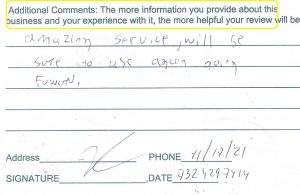 Additional Comments: The more information you provide about this
business and your experience with it, the more helpful your review will be
amazing service, will be
sure to use again going
Foward.
Address PHONE 11/17/21
SIGNATURE DATE 7324297414